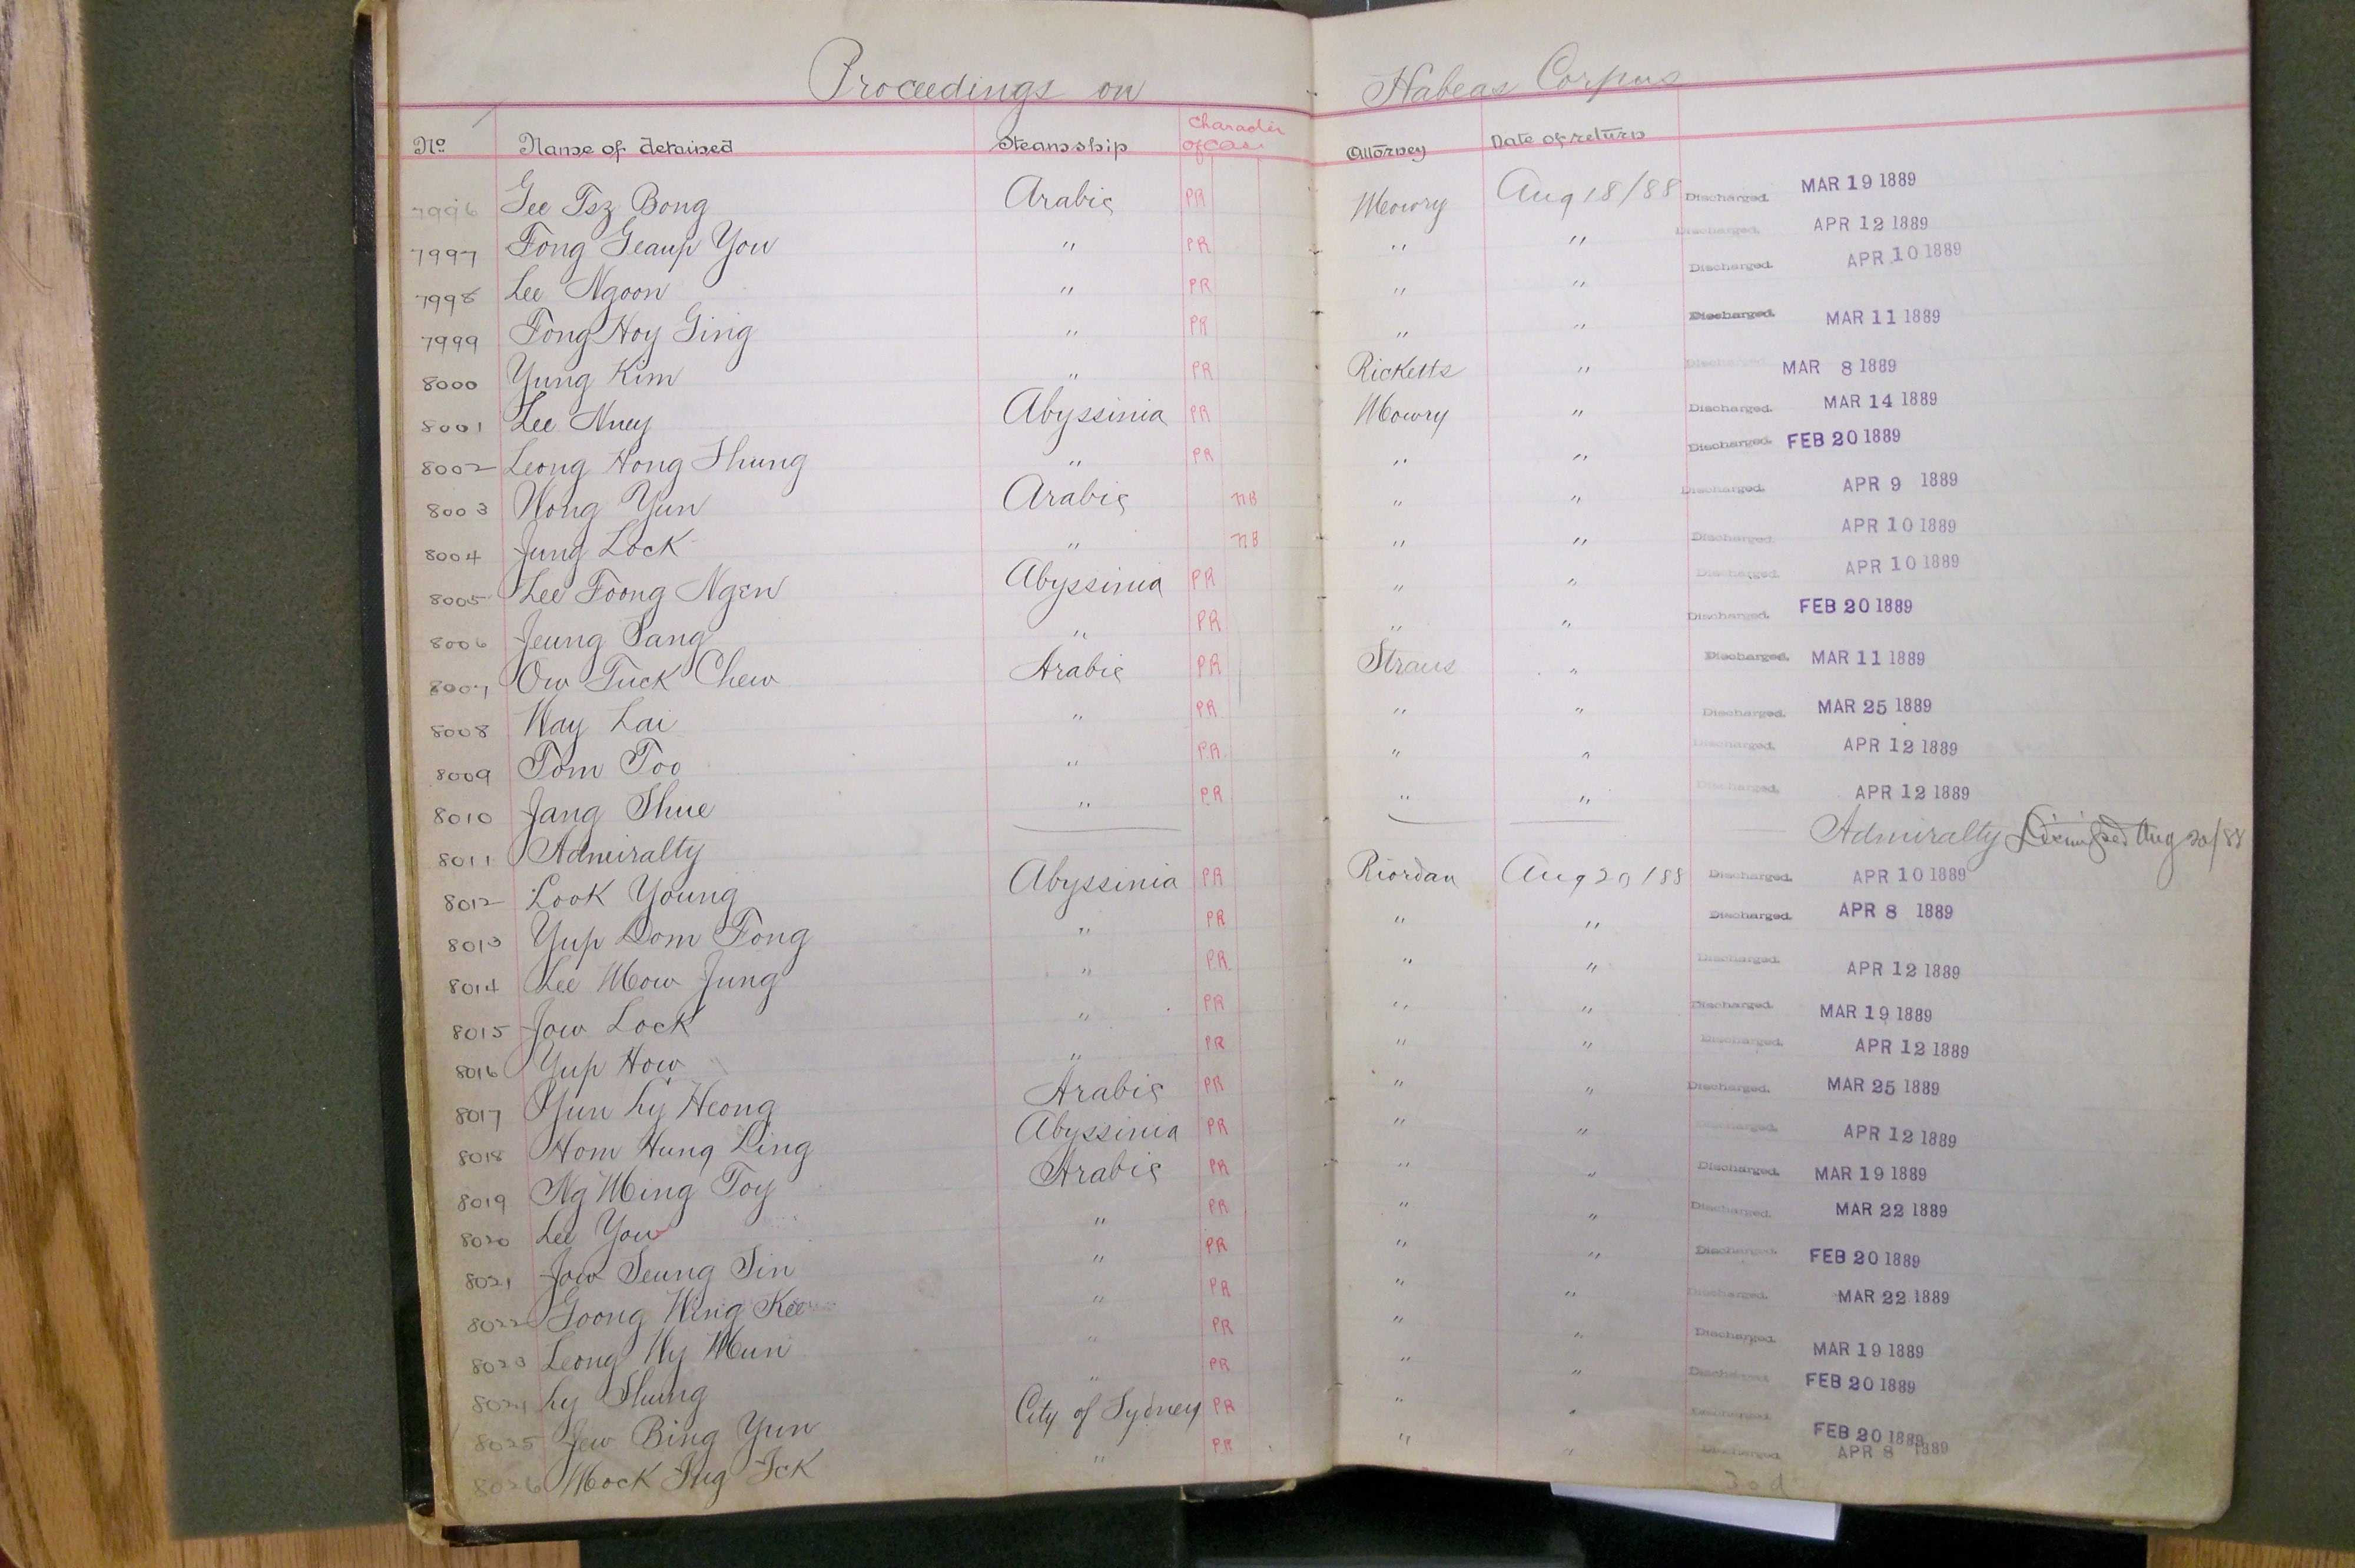 Proceedings on Habeas Corpus
No Name of detained Steamship Character of Case Attorney Date of return
7996 Gee Tsz Bong Arabic PR Mowry Aug 18/88 Discharged. MAR 19 1889
7997 Fong Geaup You " PR " " Discharged. APR 12 1889
7998 Lee Ngoon " PR " " Discharged. APR 10 1889
7999 Fong Hoy Ging " PR " " Discharged. MAR 11 1889
8000 Yung Kim " PR Ricketts " Discharged. MAR 8 1889
8001 Lee Nuey Abyssinia PR Mowry " Discharged. MAR 14 1889
8002 Leong Hong Shung " PR " " Discharged. FEB 20 1889
8003 Wong Yun Arabic NB " " Discharged. APR 9 1889
8004 Jung Lock " NB " " Discharged. APR 10 1889
8005 Lee Foong Ngen Abyssinia PR " " Discharged. APR 10 1889
8006 Jeung Sang " PR " " Discharged. FEB 20 1889
8007 Ow Tuck Chew Arabic PR Straus " Discharged. MAR 11 1889
8008 Way Lai " PR " " Discharged. MAR 25 1889
8009 Tom Too " PR " " Discharged. APR 12 1889
8010 Jang Shue " PR " " Discharged. APR 12 1889
8011 Admiralty Admiralty Dismissed Aug 20/88
8012 Look Young Abyssinia PR Riordan Aug 20/88 Discharged. APR 10 1889
8013 Yup Dom Fong " PR " " Discharged. APR 8 1889
8014 Lee Mow Jung " PR " " Discharged. APR 12 1889
8015 Jow Lock " PR " " Discharged. MAR 19 1889
8016 Yup How " PR " " Discharged. APR 12 1889
8017 Yun Ly Heong Arabic PR " " Discharged. MAR 25 1889
8018 Hom Hung Ling Abyssinia PR " " Discharged. APR 12 1889
8019 Ng Ming Toy Arabic PR " " Discharged. MAR 19 1889
8020 Lee You " PR " " Discharged. MAR 22 1889
8021 Jow Seung Sin " PR " " Discharged. FEB 20 1889
8022 Goong Wing Kee " PR " " Discharged. MAR 22 1889
8023 Leong Hy Mun " PR " " Discharged. MAR 19 1889
8024 Ly Shung " PR " " Discharged. FEB 20 1889
8025 Jew Bing Yun City of Sydney PR " " Discharged. FEB 20 1889
8026 Mock " PR " " Discharged. APR 8 1889